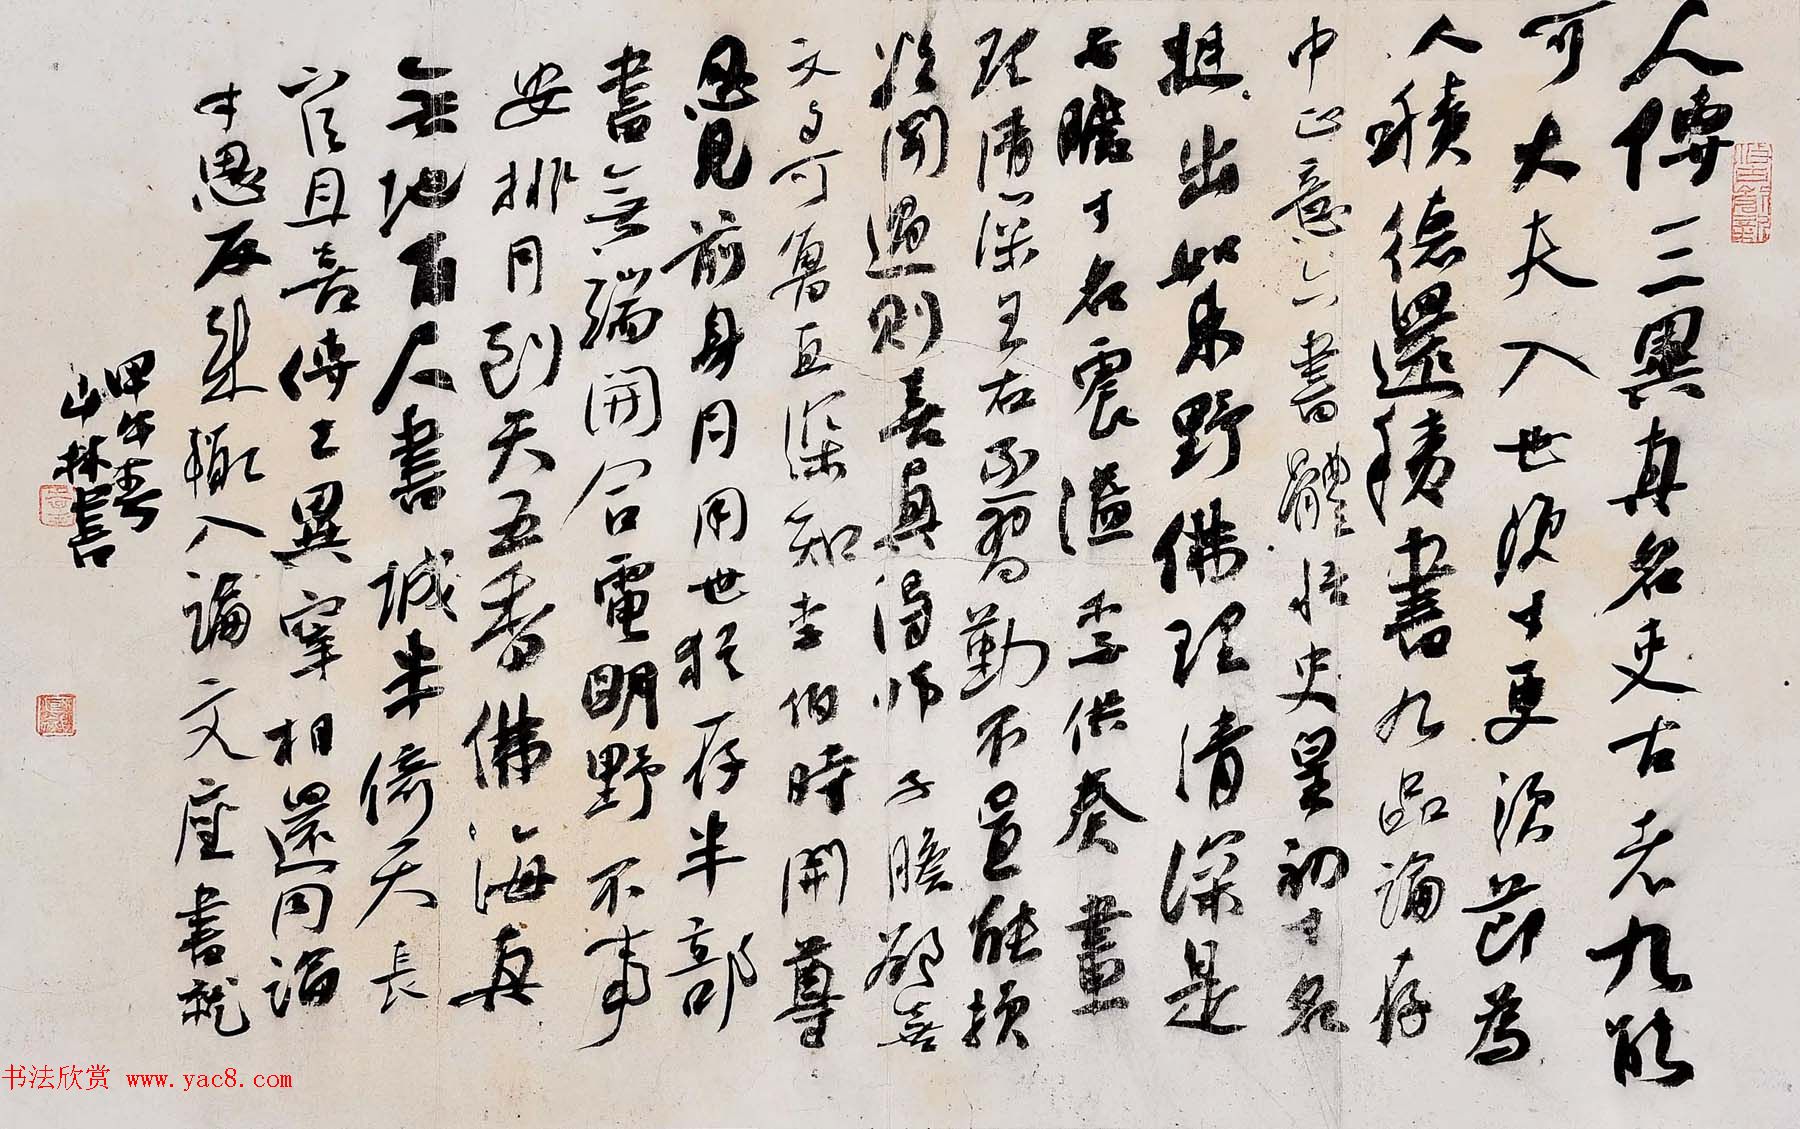 人傳三異真名吏古老九能
可大夫入世須才更須節為
人積德還積書九品論存
中正意六書體悟史皇初才名
挺出如東野佛理清深是
子瞻才名震溢李供奉畫
理清深王右丞習勤不置能損
欲聞過則喜真得師子瞻願喜
文與可魯直深知李伯時開尊
思見前身月用世猶存半部
書無端開合電明野不事
安排月到天五香佛海真
無地百人書城半倚天長
官且喜傳三異宰相還同詔
才思反來輒入論文座書就
甲午春
山林書
书法欣赏 www.yac8.com